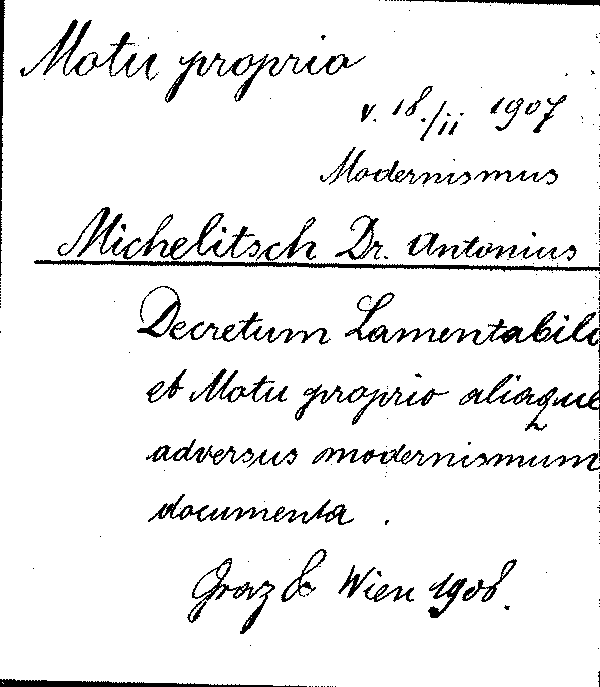 Motu proprio
v. 18./ii 1907
Modernismus
Michelitsch Dr. Antonius
Decretum Lamentabili
et Motu proprio aliaque
adversus modernismum
documenta .
Graz & Wien 1908.